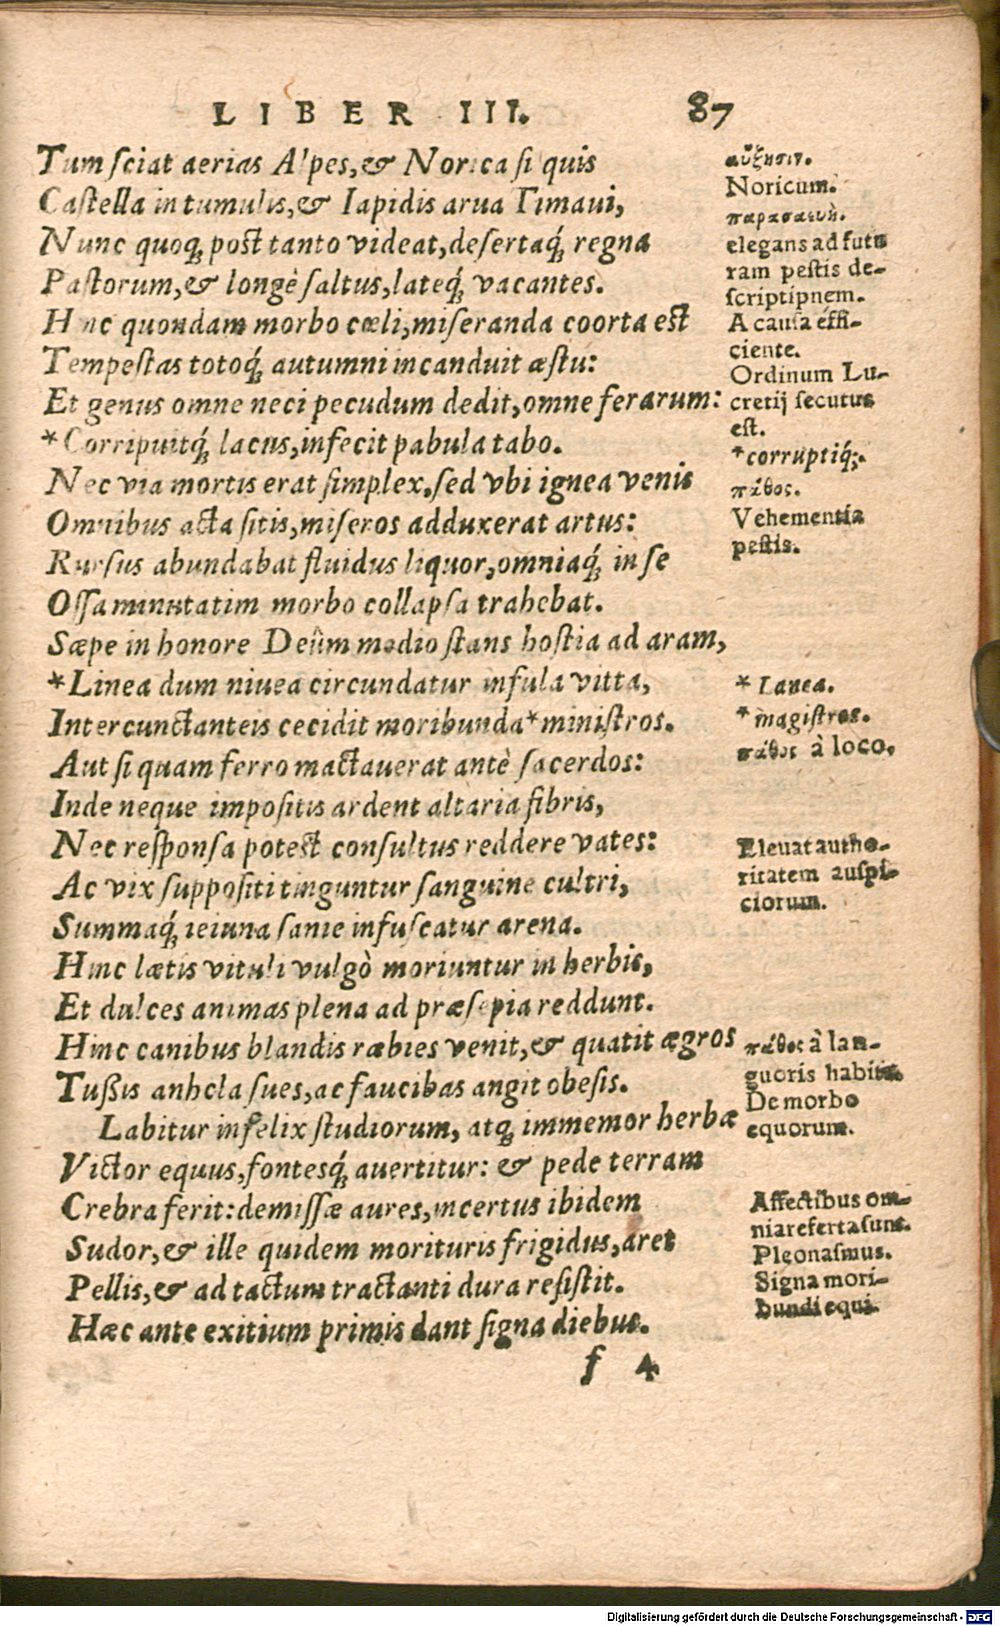 LIBER III. 87
Tum ſciat aerias Alpes, & Norica ſi quis
Caſtella in tumulis, & Iapidis arua Timaui,
Nunc quoq; poſt tanto videat, deſertaq́; regna
Paſtorum, & longè ſaltus, lateq́; vacantes.
Hinc quondam morbo cœli, miſeranda coorta eſt
Tempeſtas totoq́; autumni incanduit æſtu:
Et genus omne neci pecudum dedit, omne ferarum:
*Corripuitq́; lacus, infecit pabula tabo.
Nec via mortis erat ſimplex. ſed vbi ignea venis
Omnibus acta ſitis, miſeros adduxerat artus:
Rurſus abundabat fluidus liquor, omniaq́; in ſe
Oſſa minutatim morbo collapſa trahebat.
Sæpe in honore Deûm medio ſtans hoſtia ad aram,
*Linea dum niuea circundatur infula vitta,
Inter cunctanteis cecidit moribunda *miniſtros.
Aut ſi quam ferro mactauerat antè ſacerdos:
Inde neque impoſitis ardent altaria fibris,
Nec reſponſa poteſt conſultus reddere vates:
Ac vix ſuppoſiti tinguntur ſanguine cultri,
Summaq́; ieiuna ſanie infuſcatur arena.
Hinc lætis vituli vulgò moriuntur in herbis,
Et dulces animas plena ad præſepia reddunt.
Hinc canibus blandis rabies venit, & quatit ægros
Tuſsis anhela ſues, ac faucibas angit obeſis.
Labitur infelix ſtudiorum, atq; immemor herbæ
Victor equus, fontesq́; auertitur: & pede terram
Crebra ferit: demiſſæ aures, incertus ibidem
Sudor, & ille quidem morituris frigidus, aret
Pellis, & ad tactum tractanti dura reſiſtit.
Hæc ante exitium primis dant ſigna diebus.
f 4
αὔξησιν.
Noricum.
elegans ad futu
ram peſtis de-
ſcriptipnem.
A cauſa effi-
ciente.
Ordinum Lu-
cretij ſecutus
eſt.
*corruptiq́;.
πάθος.
Vehementia
peſtis.
* Lanea.
* magiſtros.
πάθος à loco.
Eleuat autho-
ritatem auſpi-
ciorum.
πάθος à lan-
guoris habitu.
De morbo
equorum.
Affectibus om-
nia referta ſunt.
Pleonaſmus.
Signa mori-
bundi equi.
Digitalisierung gefördert durch die Deutsche Forschungsgemeinschaft - DFG